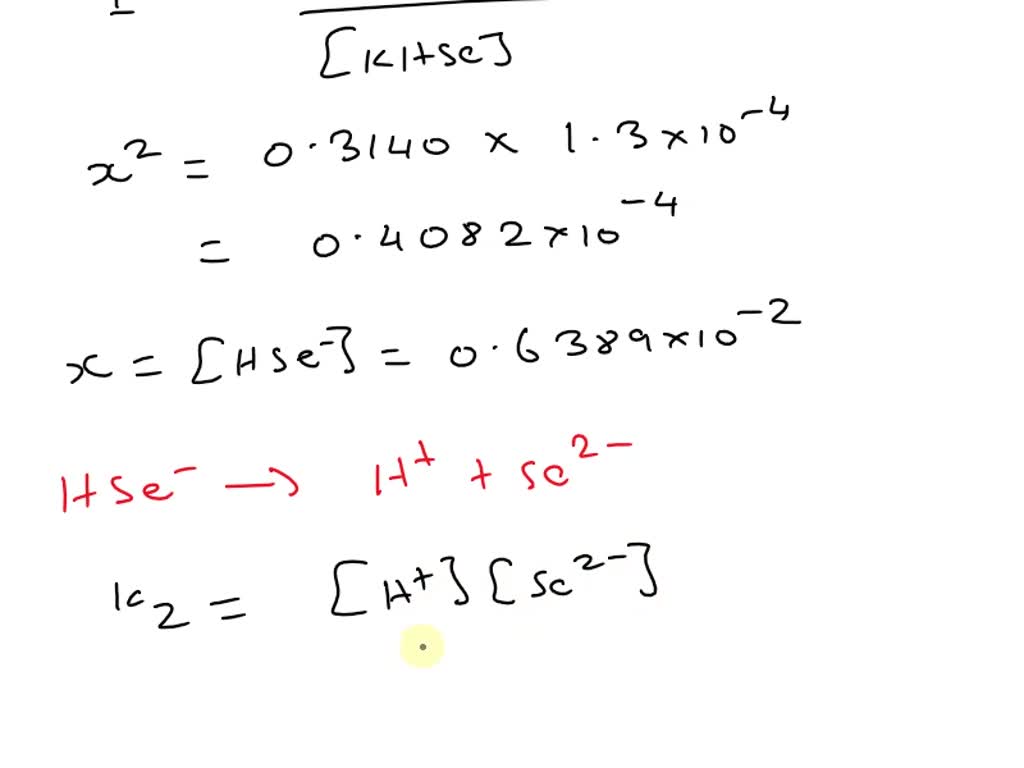 [KHSe]
x² = 0.3140 × 1.3×10⁻⁴
= 0.4082×10⁻⁴
x = [HSe⁻] = 0.6389×10⁻²
HSe⁻ → H⁺ + Se²⁻
K₂ = [H⁺][Se²⁻]